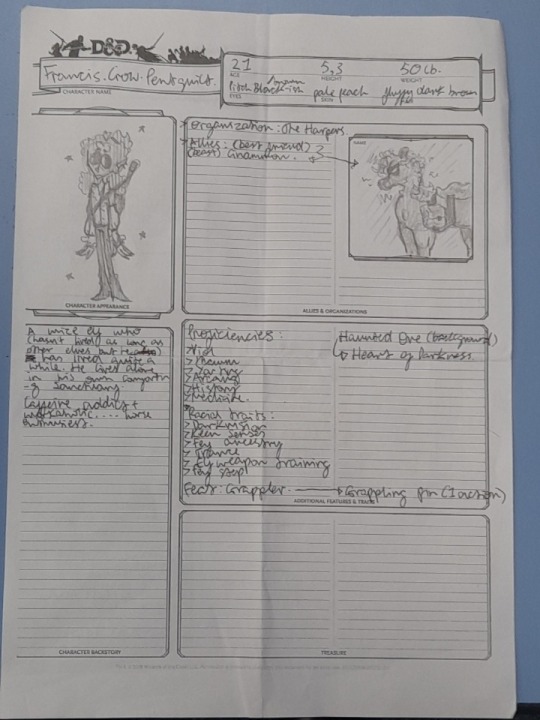 D&D
Francis. Crow. Pentquill.
CHARACTER NAME
21 5,3 50 lb.
AGE HEIGHT WEIGHT
brown
pale peach fluffy dark brown
EYES SKIN
CHARACTER APPEARANCE
Organization: The Harpers
Allies: (best friend)
(beast) Cinnamon.
NAME
ALLIES & ORGANIZATIONS
A wize elf who
(hasn't lived) as long as
other elves but
has lived quite a
while. He lives alone
in his own
of
Caffeine addict +
workaholic.... horse
CHARACTER BACKSTORY
Proficiencies:
> Arcana
> History
> Medicine.
Racial traits:
> Darkvision
> Keen senses
> Fey ancestry
> Trance
> Elf weapon training
> Fey step
Feat: Grappler. Grappling pin (1 action)
Haunted One (background)
Heart of Darkness
ADDITIONAL FEATURES & TRAITS
TREASURE